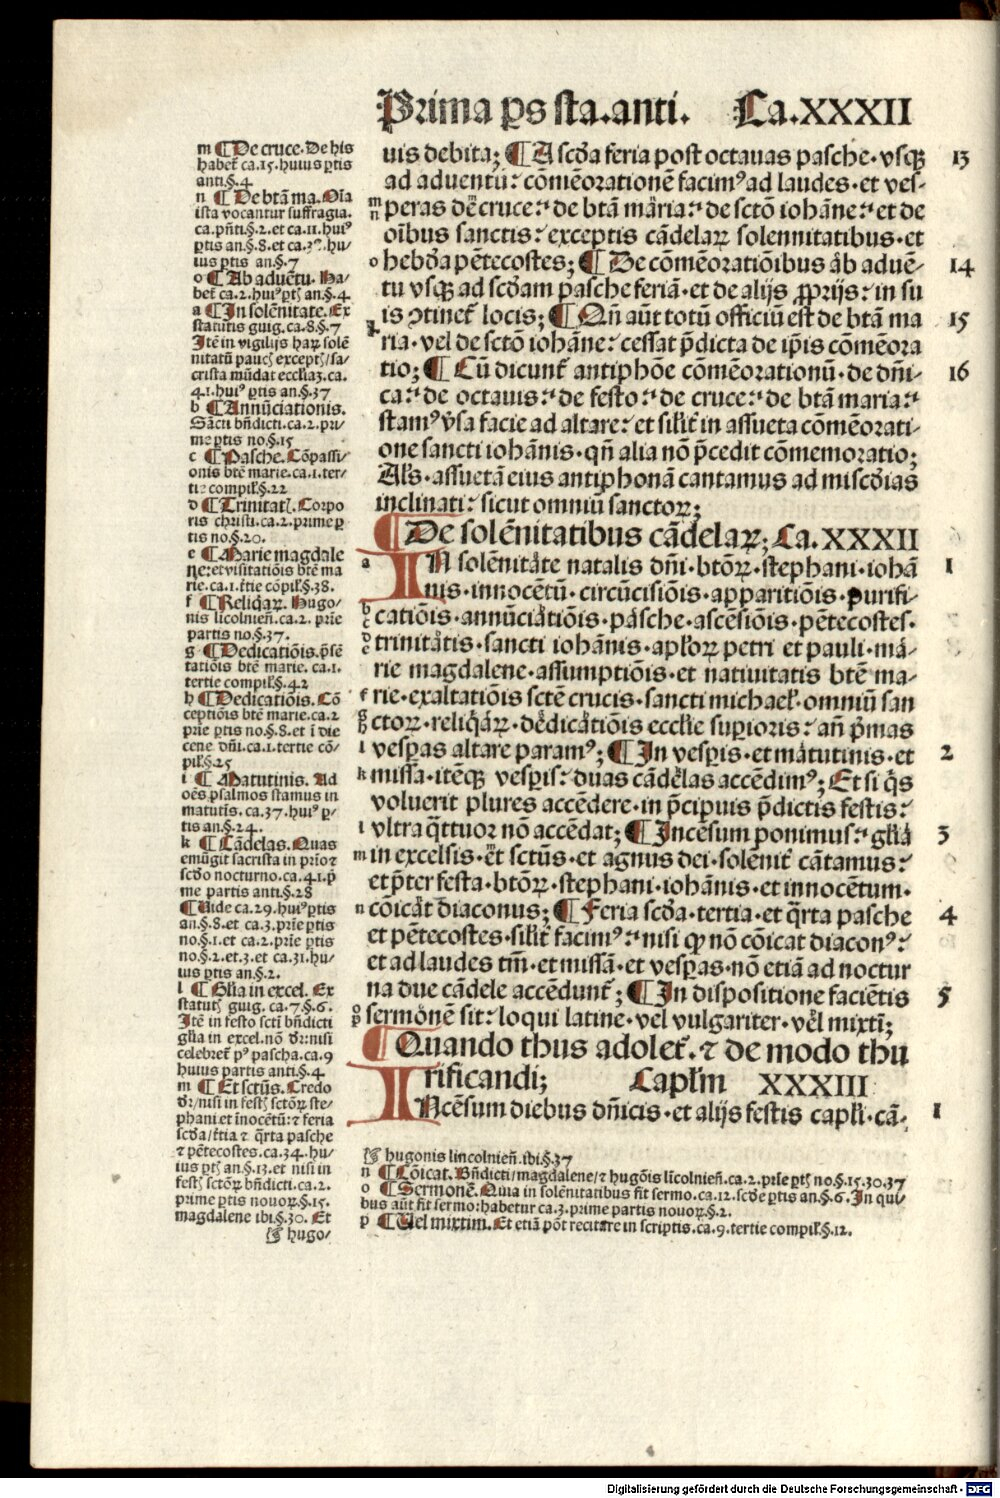 Prima ꝑs sta.anti. Ca.XXXII
m ¶ De cruce. De his
habet᷑ ca.15.huius ꝑtis
anti.§.4
n ¶ De btā ma. Oīa
ista vocantur suffragia.
ca.pn̄ti.§.2.et ca.11.huiꝰ
ꝑtis an.§.8.et ca.3?.hu/
ius ꝑtis an.§.7
o ¶ Ab aduētu. Ha/
bet᷑ ca.2.huiꝰ ꝑtꝭ an.§.4
a ¶ In solēnitate. Ex
statutis guig.ca.8.§.7
Itē in vigilijs haꝝ solē
nitatū paucꝭ exceptꝭ/sa/
crista mūdat eccliaꝫ.ca.
41.huiꝰ ꝑtis an.§.37
b ¶ Annūciationis.
Sācti bn̄dicti.ca.2.pri/
me ꝑtis no.§.15
c ¶ Pasche. Cōpassi/
onis btē marie.ca.1.ter/
tie compil᷑.§.22
d ¶ Trinitatꝭ. Corpo
ris christi.ca.2.prime ꝑ
tis no.§.20.
e ¶ Marie magdale
ne:et visitatiōis btē ma
rie.ca.1.t᷑tie cōpil᷑.§.38.
f ¶ Reliq̄aꝝ. Hugo/
nis licolnien̄.ca.2. prīe
partis no.§.37.
g ¶ Dedicatiōis. p̄sē
tatiōis btē marie. ca.1.
tertie compil᷑.§.42
h ¶ Dedicatiōis. Cō
ceptiōis btē marie.ca.2
prīe ꝑtis no.§.8.et ī die
cene dn̄i.ca.1.tertie cō/
pil᷑.§.25
i ¶ Matutinis. Ad
oēs psalmos stamus in
matutīs.ca.37.huiꝰ ꝑ/
tis an.§.24.
k ¶ Cādelas. Quas
emūgit sacrista in prīo ⁊
scd̄o nocturno.ca.41.p̄
me partis anti.§.28
¶ Vide ca.29.huiꝰ ꝑtis
an.§.8.et ca.3.prīe ꝑtis
no.§.1.et ca.2.prīe ꝑtis
no.§.2.et.3.et ca.31.hu/
ius ꝑtis an.§.2.
l ¶ Gl̄ia in excel. Ex
statutꝭ guig. ca.7.§.6.
Itē in festo sctī bn̄dicti
gl̄ia in excel.nō dr᷑:nisi
celebret᷑ pꝰ pascha.ca.9
huius partis anti.§.4
m ¶ Et sctūs. Credo
dr᷑/nisi in festꝭ sctōꝝ ste/
phani et inocētū:⁊ feria
scd̄a/t᷑tia ⁊ q̄rta pasche
⁊ pētecostes.ca.34.hu/
ius ptꝭ an.§.13.et nisi in
festꝭ sctōꝝ bn̄dicti.ca.2.
prime ꝑtis nouoꝝ.§.15.
magdalene ibi.§.30. Et
☞ hugo/
uis debita; ¶ A scd̄a feria post octauas pasche·vsqꝫ 13
ad aduentū:′ cōmēorationē facimꝰ ad laudes·et ves-
m n peras de cruce:′′ de btā maria:′′ de sctō iohāne:′′ et de
oībus sanctis:′ exceptis cādelaꝝ solennitatibus·et
o hebd̄a pētecostes; ¶ De cōmēoratiōibus ab aduē- 14
tu vsqꝫ ad scd̄am pasche feriā·et de alijs ꝓprijs:′ in su
is ↄtinet᷑ locis; ¶ Qn̄ aūt totū officiū est de btā ma 15
ria·vel de sctō iohāne:′ cessat p̄dicta de ip̄is cōmēora
tio; ¶ Cū dicunt᷑ antiphōe cōmēorationū·de dn̄i- 16
ca:′′ de octauis:′′ de festo:′′ de cruce:′′ de btā maria:′′
stamꝰ v̄sa facie ad altare:′ et silit᷑ in assueta cōmēorati-
one sancti iohānis·qn̄ alia nō p̄cedit cōmemoratio;
Al᷑s·assuetā eius antiphonā cantamus ad miscd̄ias
inclinati:′ sicut omniū sanctoꝝ;
¶ De solēnitatibus cādelaꝝ; Ca.XXXII
a IN solēnitate natalis dn̄i·btōꝝ·stephani·iohā 1
nis·innocētū·circūcisiōis·apparitiōis·purifi-
b c catiōis·annūciatiōis·pasche·ascēsiōis·pētecostes·
d e trinitatis·sancti iohānis·apl᷑oꝝ petri et pauli·ma-
rie magdalene·assumptiōis·et natiuitatis btē ma-
f rie·exaltatiōis sctē crucis·sancti michael᷑·omniū san
g h ctoꝝ·reliq̄aꝝ·dedicatiōis eccl᷑ie suꝑioris:′ an̄ p̄mas
i vesꝑas altare paramꝰ; ¶ In vesꝑis·et matutinis·et 2
k missa·itēqꝫ vesꝑis:′ duas cādelas accēdimꝰ; Et si q̄s
voluerit plures accēdere·in p̄cipuis p̄dictis festis:′
l vltra q̄ttuor nō accēdat; ¶ Incēsum ponimus:′′ gl̄ia 3
m in excelsis·et sctūs·et agnus dei·solēnit᷑ cātamus:′
et p̄ter festa·btōꝝ·stephani·iohānis·et innocētum·
n cōicāt diaconus; ¶ Feria scd̄a·tertia·et q̄rta pasche 4
et pētecostes·silit᷑ facimꝰ:′′ nisi ꝙ nō cōicat diaconꝰ:′
et ad laudes tm̄·et missā·et vesꝑas·nō etiā ad noctur
na due cādele accēdunt᷑; ¶ In dispositione faciētis 5
o p sermonē sit:′ loqui latine·vel vulgariter·vel mixtī;
¶ Quando thus adolet᷑.⁊ de modo thu
rificandi; Capl᷑m XXXIII
INcēsum diebus dn̄icis·et alijs festis capl᷑i·cā- 1
☞ hugonis lincolnien̄.ibi.§.37
n ¶ Cōicat. Bn̄dicti/magdalene/⁊ hugōis līcolnien̄.ca.2.prīe ptꝭ no.§.15.30.37
o ¶ Sermonē. Qui in solēnitatibus fit sermo.ca.12.scd̄e ꝑtis an.§.6. In qui/
bus aūt fit sermo:habetur ca.3.prime partis nouoꝝ.§.2.
p ¶ Vel mixtim. Et etiā pōt recitare in scriptis.ca.9.tertie compil᷑.§.12.
Digitalisierung gefördert durch die Deutsche Forschungsgemeinschaft - DFG